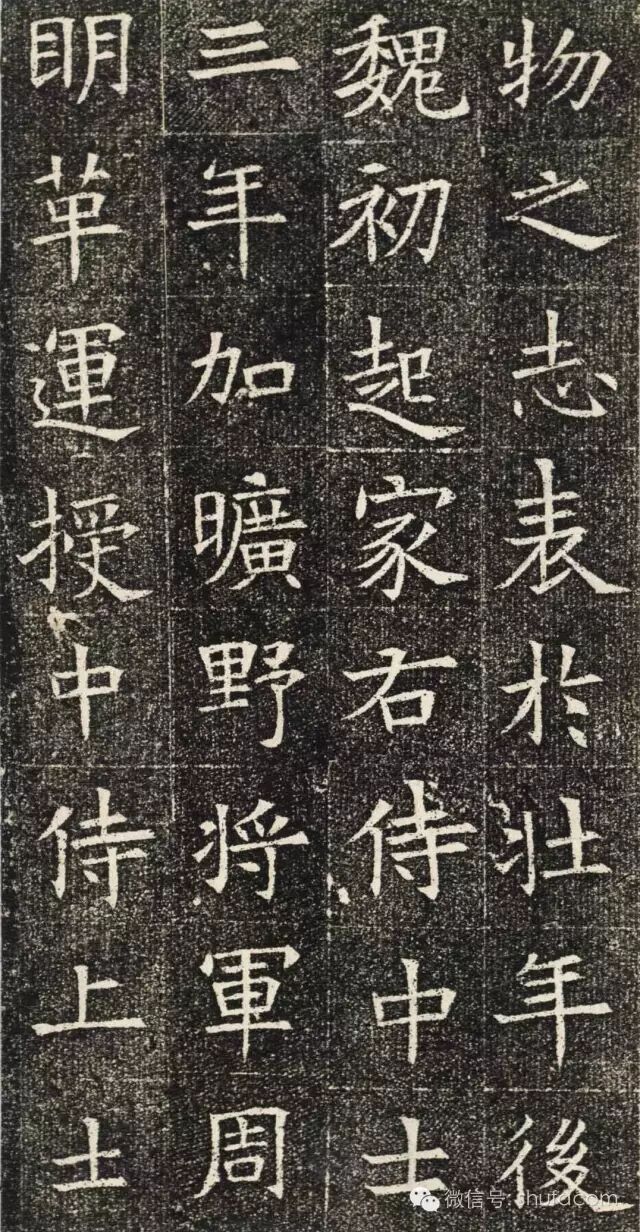 物之志表於壮年後
魏初起家右侍中士
三年加曠野将軍周
明革運授中侍上士
微信号: shufacom